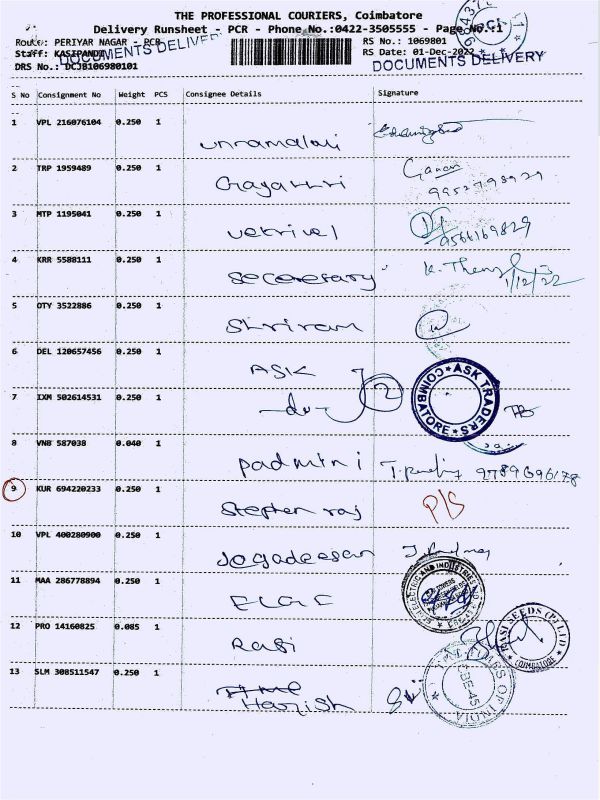 THE PROFESSIONAL COURIERS, Coimbatore
Delivery Runsheet - PCR - Phone No.:0422-3505555 - Page No.:1
Route: PERIYAR NAGAR - PCR
RS No.: 1069801
Staff: KASIPANDI
RS Date: 01-Dec-2022
DOCUMENTS DELIVERY
DOCUMENTS DELIVERY
DRS No.: DCJB106980101
S No Consignment No Weight PCS Consignee Details Signature
1 VPL 216076104 0.250 1
unnamalai
2 TRP 1959489 0.250 1
Gayathri
3 MTP 1195041 0.250 1
vetrivel
9566169829
4 KRR 5588111 0.250 1
secretary
1/12/22
5 OTY 3522886 0.250 1
Shriram
6 DEL 120657456 0.250 1
ASK
ASK TRADERS
COIMBATORE
7 IXM 502614531 0.250 1
-du- 2
8 VNB 587038 0.040 1
padmini 9789696178
9 KUR 694220233 0.250 1
Stephen raj P/S
10 VPL 400280900 0.250 1
Jegadeesan
11 MAA 286778894 0.250 1
ELGE
ELECTRIC AND INDUSTRIES
12 PRO 14160825 0.085 1
Rasi
RASI SEEDS (P) LTD
COIMBATORE
13 SLM 308511547 0.250 1
Harish
TIMES OF INDIA